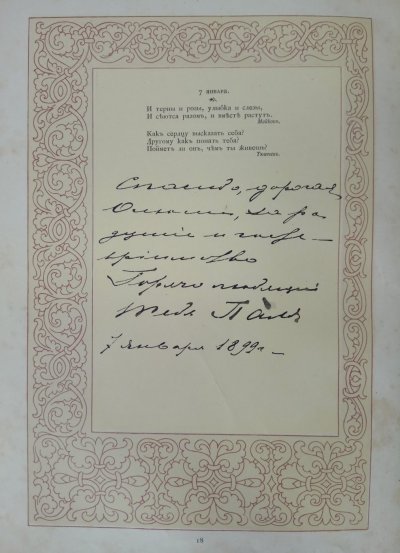 7 ЯНВАРЯ.
И терны и розы, улыбка и слезы,
И сѣются разомъ, и вмѣстѣ растутъ.
Майковъ.
Какъ сердцу высказать себя?
Другому какъ понять тебя?
Пойметъ ли онъ, чѣмъ ты живешь?
Тютчевъ.
Спасибо, дорогая
за ра
душiе и госте-
прiимство
Горячо любящiй
тебя
7 января 1899 г.
18